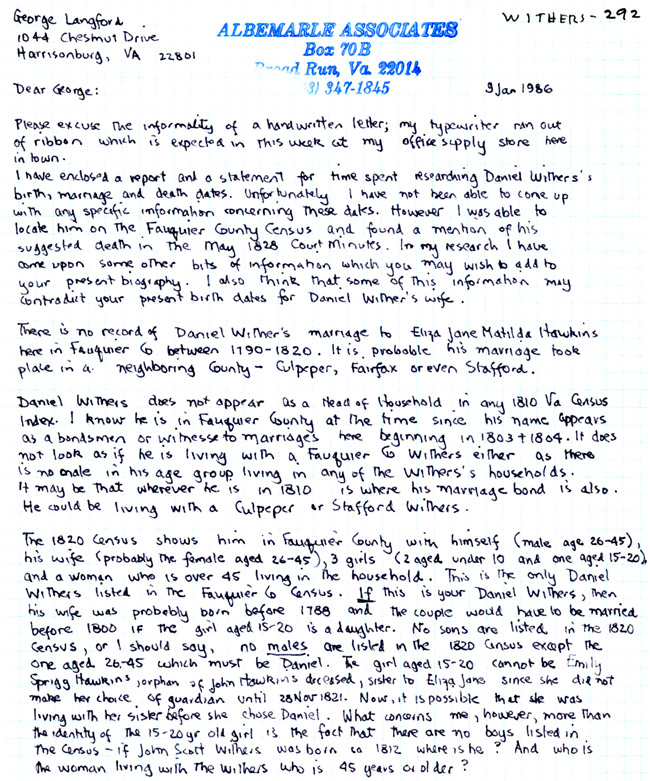 George Langford
1044 Chestnut Drive
Harrisonburg, VA 22801
ALBEMARLE ASSOCIATES
Box 70B
Broad Run, Va. 22014
3) 347-1845
WITHERS - 292
Dear George:
9 Jan 1986
Please excuse the informality of a handwritten letter; my typewriter ran out
of ribbon which is expected in this week at my office supply store here
in town.
I have enclosed a report and a statement for time spent researching Daniel Withers's
birth, marriage and death dates. Unfortunately I have not been able to come up
with any specific information concerning these dates. However I was able to
locate him on the Fauquier County Census and found a mention of his
suggested death in the May 1828 Court Minutes. In my research I have
come upon some other bits of information which you may wish to add to
your present biography. I also think that some of this information may
contradict your present birth dates for Daniel Wither's wife.
There is no record of Daniel Wither's marriage to Eliza Jane Matilda Hawkins
here in Fauquier Co between 1790-1820. It is probable his marriage took
place in a neighboring County - Culpeper, Fairfax or even Stafford.
Daniel Withers does not appear as a Head of Household in any 1810 Va Census
Index. I know he is in Fauquier County at the time since his name appears
as a bondsmen or witness to marriages here beginning in 1803 + 1804. It does
not look as if he is living with a Fauquier Co Withers either as there
is no male in his age group living in any of the Withers's households.
It may be that wherever he is in 1810 is where his marriage bond is also.
He could be living with a Culpeper or Stafford Withers.
The 1820 Census shows him in Fauquier County with himself (male age 26-45),
his wife (probably the female aged 26-45), 3 girls (2 aged under 10 and one aged 15-20)
and a woman who is over 45 living in the household. This is the only Daniel
Withers listed in the Fauquier Co Census. If this is your Daniel Withers, then
his wife was probably born before 1788 and the couple would have to be married
before 1800 IF the girl aged 15-20 is a daughter. No sons are listed in the 1820
Census, or I should say, no males are listed in the 1820 Census except the
one aged 26-45 which must be Daniel. The girl aged 15-20 cannot be Emily
Sprigg Hawkins, orphan of John Hawkins deceased, sister to Eliza Jane since she did not
make her choice of guardian until 28 Nov 1821. Now, it is possible that she was
living with her sister before she chose Daniel. What concerns me, however, more than
the identity of the 15-20 yr old girl is the fact that there are no boys listed in
the Census - if John Scott Withers was born ca 1812 where is he? And who is
the woman living with the Withers who is 45 years or older?